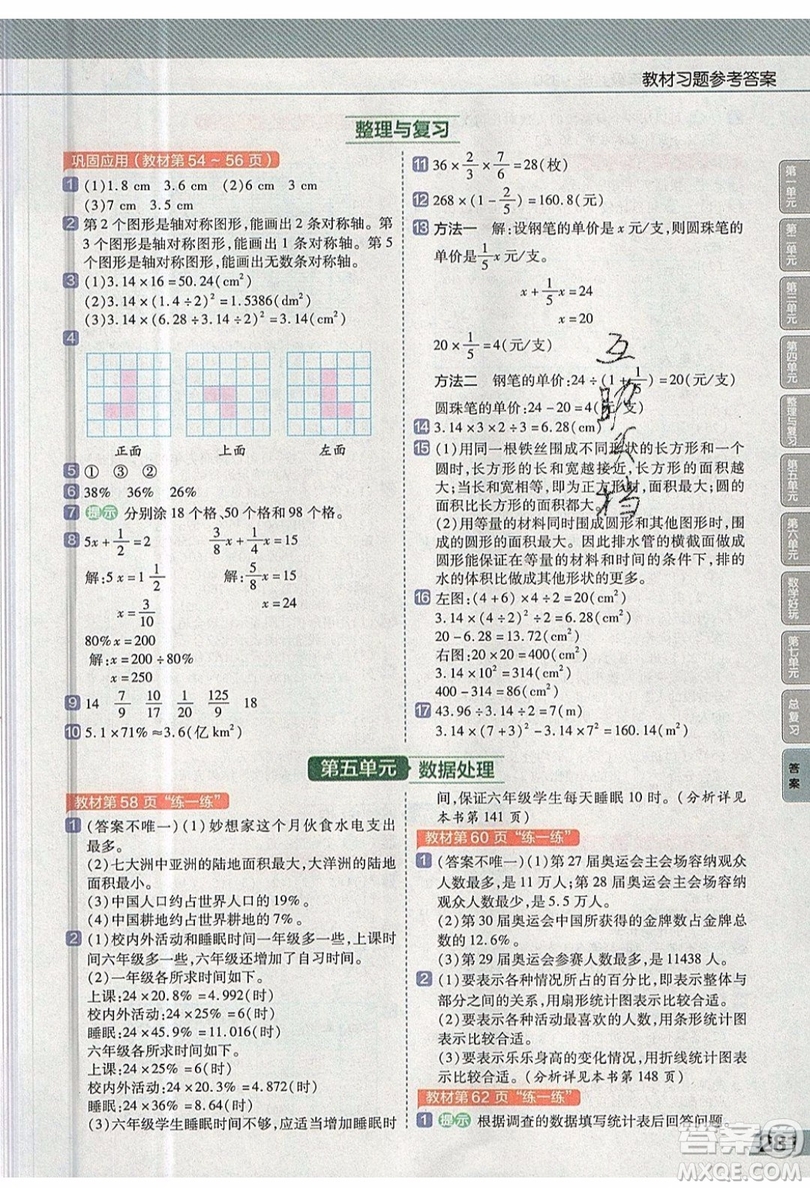 教材习题参考答案
整理与复习
巩固应用(教材第 54 ~ 56 页)
1 (1)1.8 cm 3.6 cm (2)6 cm 3 cm
(3)7 cm 3.5 cm
2 第 2 个图形是轴对称图形,能画出 2 条对称轴。第
3 个图形是轴对称图形,能画出 1 条对称轴。第 5
个图形是轴对称图形,能画出无数条对称轴。
3 (1)3.14×16=50.24(cm²)
(2)3.14×(1.4÷2)²=1.5386(dm²)
(3)3.14×(6.28÷3.14÷2)²=3.14(cm²)
4
正面 上面 左面
5 ① ③ ②
6 38% 36% 26%
7 提示 分别涂 18 个格、50 个格和 98 个格。
8 5x+1/2=2 3/8x+1/4x=15
解:5x=1 1/2 解:5/8x=15
x=3/10 x=24
80%x=200
解:x=200÷80%
x=250
9 14 7/9 10/17 1/20 125/9 18
10 5.1×71%≈3.6(亿 km²)
11 36×2/3×7/6=28(枚)
12 268×(1-2/5)=160.8(元)
13 方法一 解:设钢笔的单价是 x 元/支,则圆珠笔的
单价是1/5x 元/支。
x+1/5x=24
x=20
20×1/5=4(元/支)
方法二 钢笔的单价:24÷(1+1/5)=20(元/支)
圆珠笔的单价:24-20=4(元/支)
14 3.14×3×2×2
15 (1)用同一根铁丝围成不同形状的长方形和一个
圆时,长方形的长和宽越接近,长方形的面积越
大;当长和宽相等,即为正方形时,面积最大,圆的
面积比所有长方形的面积都大。
(2)用等量的材料同时围成圆形和其他图形,围
成的圆形的面积最大。因此排水管的横截面做成
圆形能保证在等量的材料和时间的条件下,排的
水的体积比做成其他形状的多。
16 左图:(4+6)×4÷2=20(cm²)
3.14×(4÷2)²÷2=6.28(cm²)
20-6.28=13.72(cm²)
右图:20×20=400(cm²)
3.14×10²=314(cm²)
400-314=86(cm²)
17 43.96÷3.14÷2=7(m)
3.14×(7+3)²-3.14×7²=160.14(m²)
第五单元 数据处理
教材第 58 页“练一练”
1 (答案不唯一)(1)妙想家这个月伙食水电支出
最多。
(2)七大洲中亚洲的陆地面积最大,大洋洲的陆地
面积最小。
(3)中国人口约占世界人口的 19%。
(4)中国耕地约占世界耕地的 7%。
2 (1)校内外活动和睡眠时间一年级多一些,上课时
间六年级多一些,六年级还增加了自习时间。
(2)一年级各所求时间如下。
上课:24×20.8%=4.992(时)
校内外活动:24×25%=6(时)
睡眠:24×45.9%=11.016(时)
六年级各所求时间如下。
上课:24×25%=6(时)
校内外活动:24×20.3%=4.872(时)
睡眠:24×36%=8.64(时)
(3)六年级学生睡眠时间不够,应适当增加睡眠时
间,保证六年级学生每天睡眠 10 时。(分析详见
本书第 141 页)
教材第 60 页“练一练”
1 (答案不唯一)(1)第 27 届奥运会主会场容纳观众
人数最多,是 11 万人;第 28 届奥运会主会场容纳
观众人数最少,是 5.5 万人。
(2)第 30 届奥运会中国所获得的金牌数占金牌总
数的 12.6%。
(3)第 29 届奥运会参赛人数最多,是 11438 人。
2 (1)要表示各种情况所占的百分比,即整体与
部分之间的关系,用扇形统计图表示比较合适。
(2)要表示各种活动最喜欢的人数,用条形统计图
表示比较合适。
(3)要表示乐乐身高的变化情况,用折线统计图表
示比较合适。(分析详见本书第 148 页)
教材第 62 页“练一练”
1 提示 根据调查的数据填写统计表后回答问题。
第一单元
第二单元
第三单元
第四单元
整理与复习
第五单元
第六单元
数学好玩
第七单元
总复习
答案
281
MXQE.COM